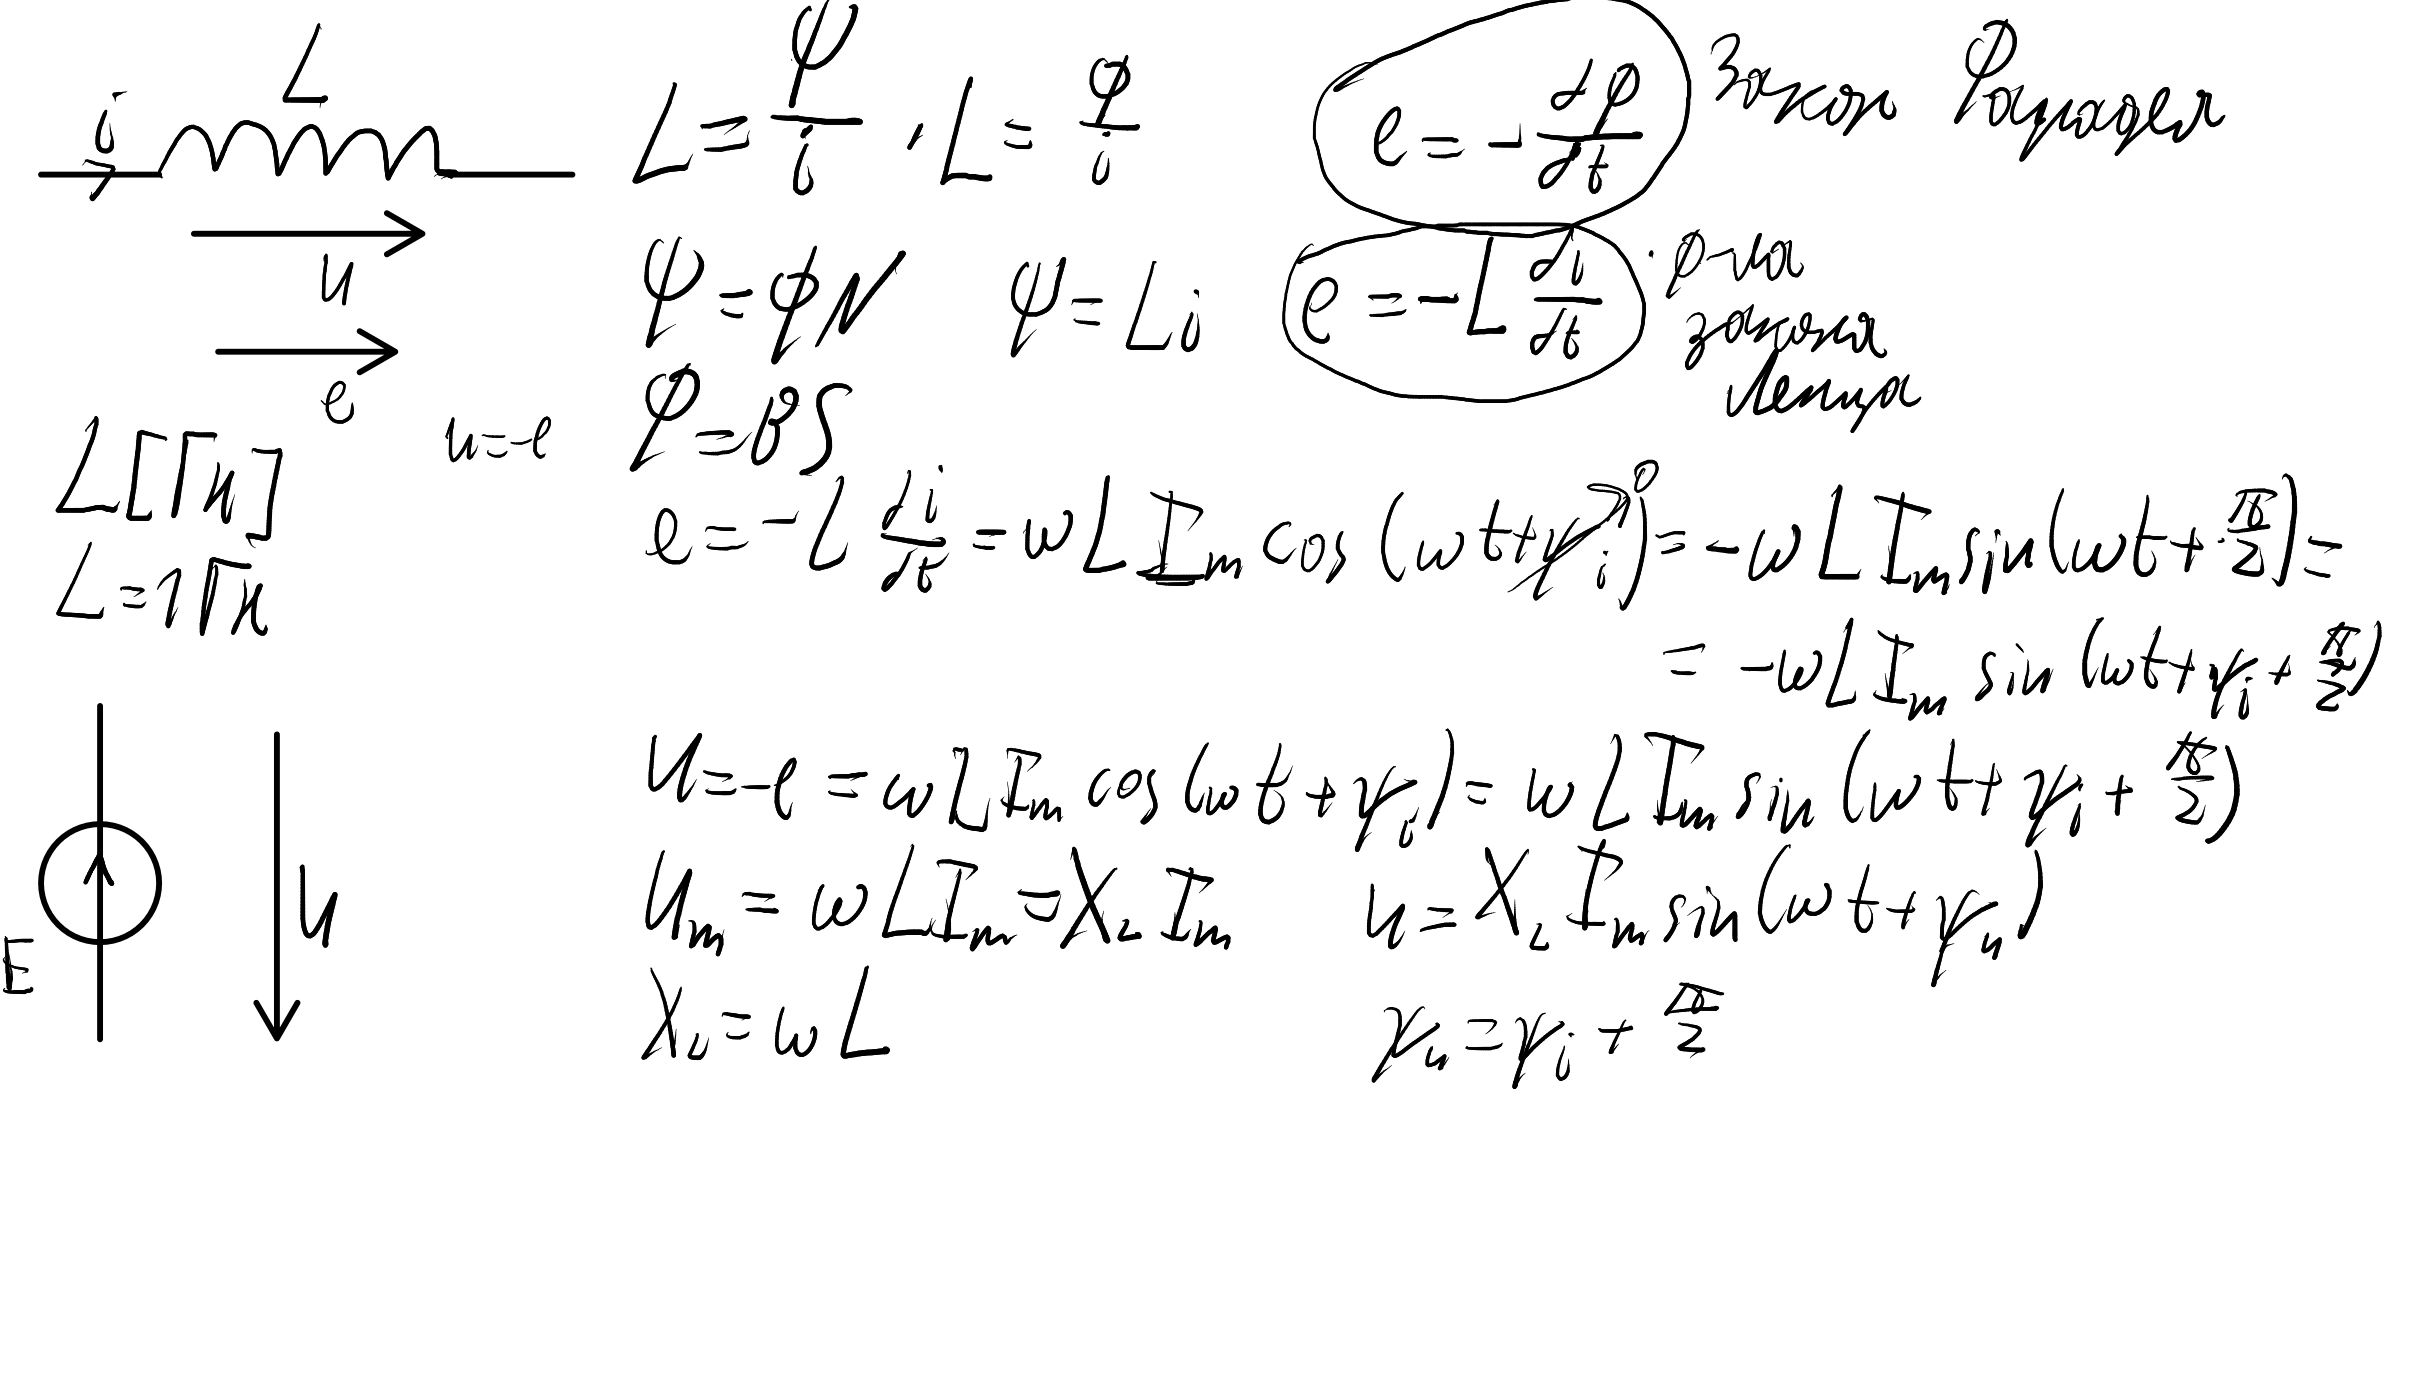 L
i
u
e
u=-e
L[Гн]
L=1Гн
E
U
L = Ψ/i , L = Φ/i
e = - dφ/dt Закон Фарадея
Ψ = ΦN Ψ = Li
e = -L di/dt . ф-ла закона Ленца
Φ = BS
e = -L di/dt = ωLI_m cos(ωt+ψ_i) 0 = -ωLI_m sin(ωt+π/2) =
= -ωLI_m sin(ωt+ψ_i+π/2)
U = -e = ωLI_m cos(ωt+ψ_i) = ωLI_m sin(ωt+ψ_i+π/2)
U_m = ωLI_m = X_L I_m u = X_L I_m sin(ωt+ψ_u)
X_L = ωL ψ_u = ψ_i + π/2